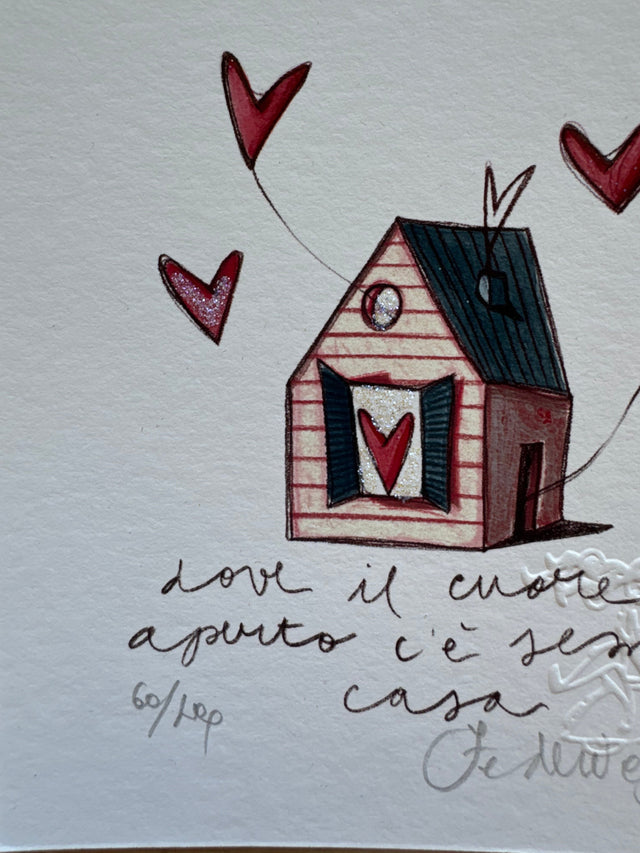 dove il cuore
aperto c'è sem
casa
60/
Federi